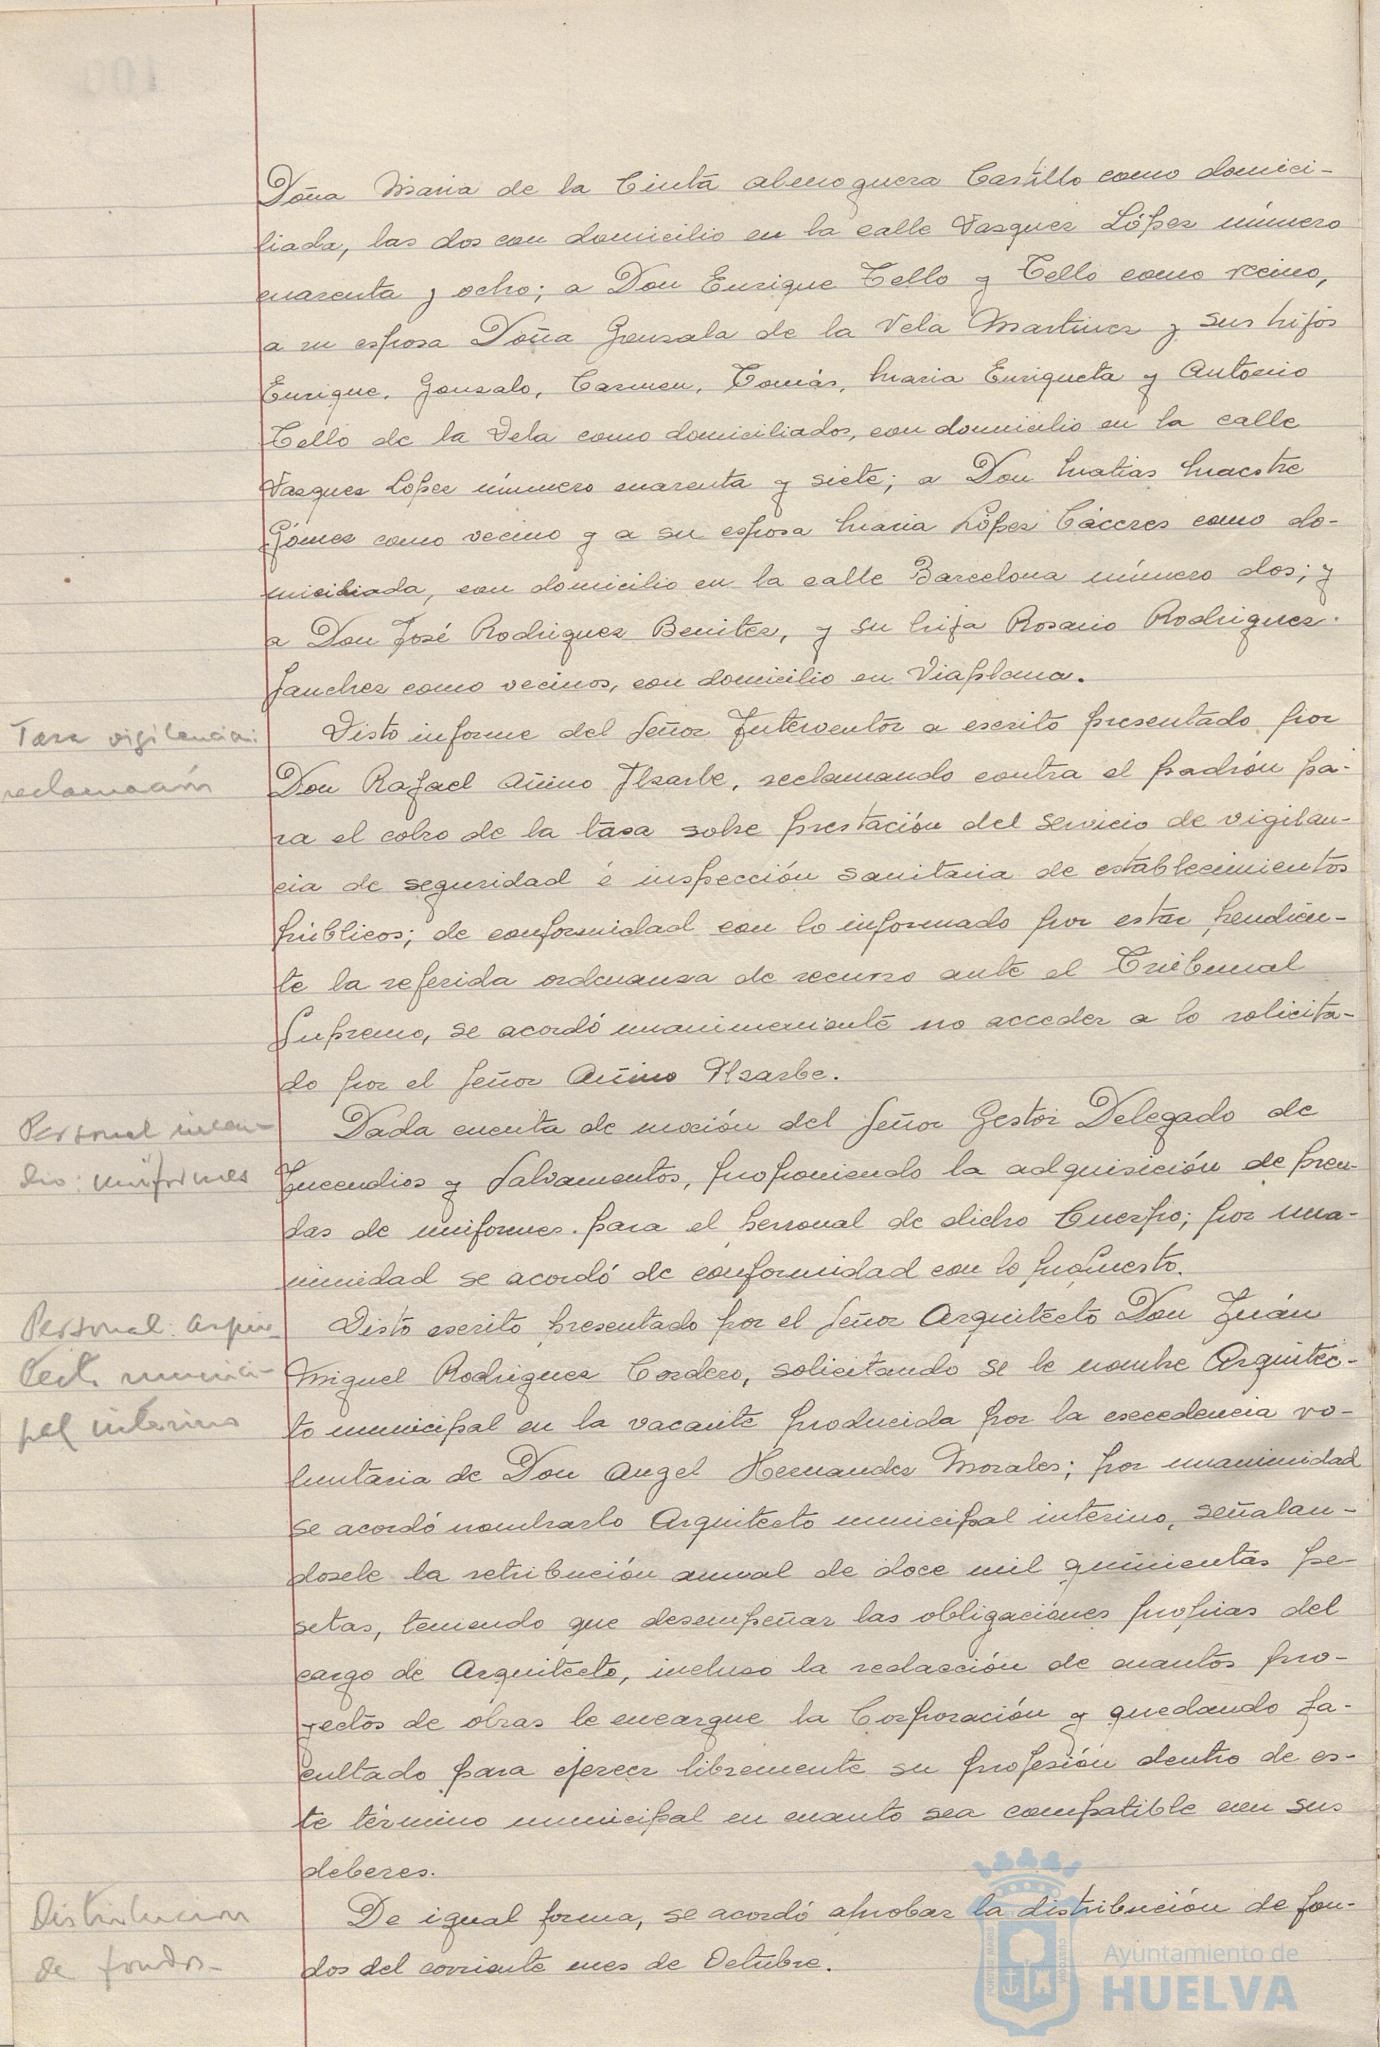 Doña Maria de la Cinta Almoguera Castillo como domici-
liada, las dos con domicilio en la calle Vasquez López número
cuarenta y ocho; a Don Enrique Tello y Tello como vecino,
a su esposa Doña Gonzala de la Vela Martinez y sus hijos
Enrique, Gonzalo, Carmen, Tomás, Maria Enriqueta y Antonio
Tello de la Vela como domiciliados, con domicilio en la calle
Vasquez López número cuarenta y siete; a Don Matias Maestre
Gómez como vecino y a su esposa Maria López Cáceres como do-
miciliada, con domicilio en la calle Barcelona número dos; y
a Don José Rodriguez Benitez, y su hija Rosario Rodriguez
Sanchez como vecinos, con domicilio en Viaplana.
Tasa vigilancia:
reclamación
Visto informe del Señor Interventor a escrito presentado por
Don Rafael Añino Ilzarbe, reclamando contra el padrón pa-
ra el cobro de la tasa sobre prestación del servicio de vigilan-
cia de seguridad é inspección sanitaria de establecimientos
públicos; de conformidad con lo informado por estar pendien-
te la referida ordenanza de recurso ante el Tribunal
Supremo, se acordó unanimemente no acceder a lo solicita-
do por el Señor Añino Ilzarbe.
Personal incen-
dio: uniformes
Dada cuenta de moción del Señor Gestor Delegado de
Incendios y Salvamentos, proponiendo la adquisición de pren-
das de uniformes para el personal de dicho Cuerpo; por una-
nimidad se acordó de conformidad con lo propuesto.
Personal: Arqui-
tecto munici-
pal interino
Visto escrito presentado por el Señor Arquitecto Don Juán
Miguel Rodriguez Cordero, solicitando se le nombre Arquitec-
to municipal en la vacante producida por la excedencia vo-
luntaria de Don Angel Hernandez Morales; por unanimidad
se acordó nombrarlo Arquitecto municipal interino, señalan-
dosele la retribución anual de doce mil quinientas pe-
setas, teniendo que desempeñar las obligaciónes propias del
cargo de Arquitecto, incluso la redacción de cuantos pro-
yectos de óbras le encargue la Corporación y quedando fa-
cultado para ejercer libremente su profesión dentro de es-
te término municipal en cuanto sea compatible con sus
deberes.
Distribucion
de fondos-
De igual forma, se acordó aprobar la distribución de fon-
dos del corriente mes de Octubre.
Ayuntamiento de
HUELVA